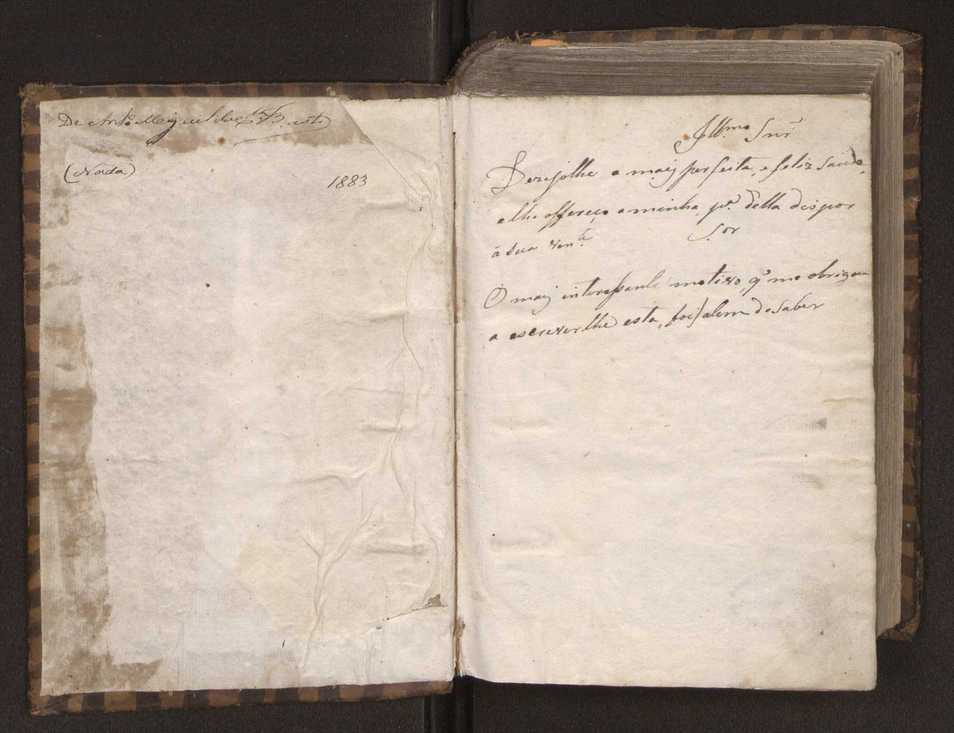 De Antº Miguel da
(Nada)
1883
Illmo Snr
Dezejolhe a maiz perfeita, e feliz Saude,
e lhe offereço a minha, pª della dispor
á Sua vontе
Sor
O maiz interessante motivo, q̃ me obrigou
a escreverlhe esta, foi alem de Saber